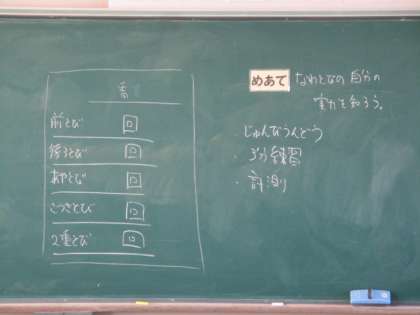 めあて なわとびの自分の
実力を知ろう。
・じゅんびうんどう
・3分練習
・計測
前とび 回
後ろとび 回
あやとび 回
こうさとび 回
2重とび 回